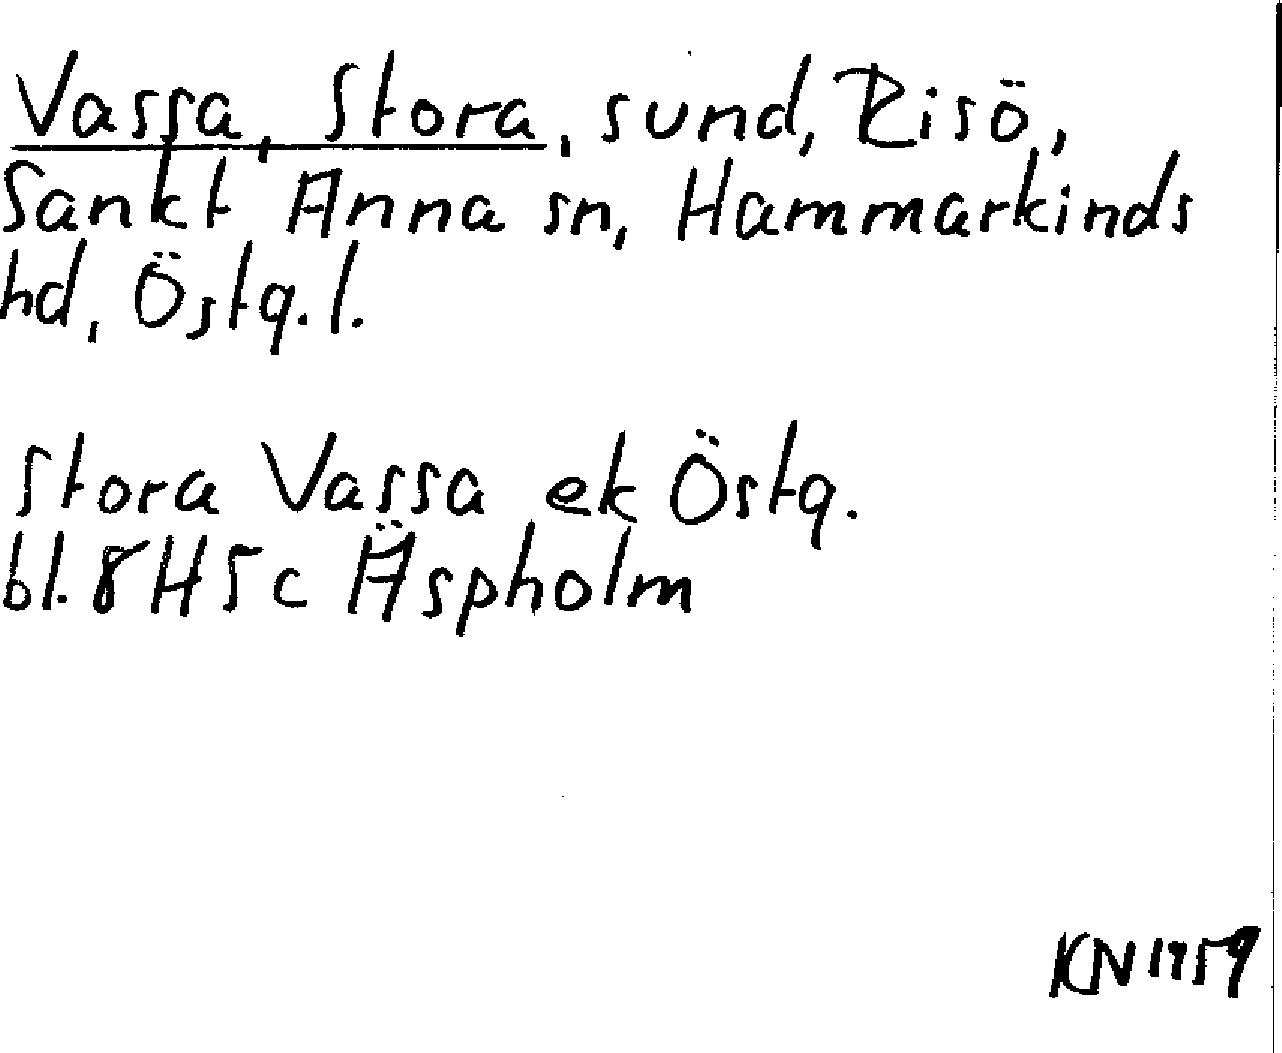 Vassa, Stora, sund, Risö,
Sankt Anna sn, Hammarkinds
hd, Östg. l.
Stora Vassa ek Östg.
bl. 8H5c Äspholm
KN 1959